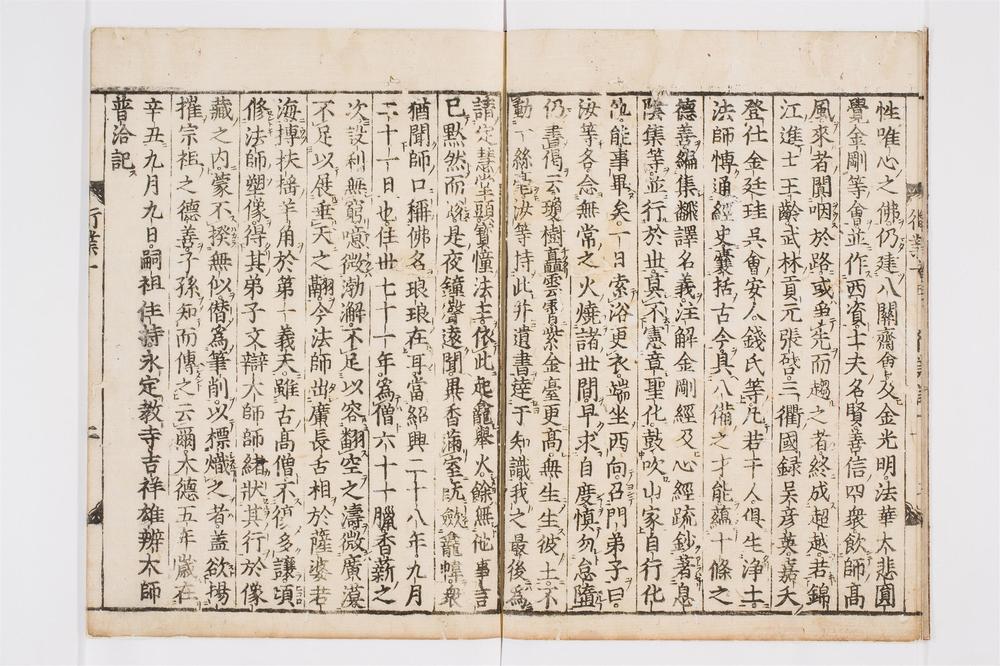 性唯心之佛仍建八關齋會及金光明法華大悲圓
覺金剛等會並作西資士夫名賢善信四衆飲師高
風來者闐咽於路或爭先而趨之者終成超越若錦
江進士王齡武林貢元張䇽三衢國録吳彦英嘉夭
登仕金廷珪吳會安人錢氏等凡若干人俱生浄土
法師博通經史囊括古今具八備之才能蘊十條之
德善編集翻譯名義注解金剛經及心經疏鈔著息
陰集等並行於世其不憲章聖化鼓吹山家自行化
他能事畢矣一日索浴更衣端坐西向召門弟子曰
汝等各念無常之火燒諸世間早求自度慎勿怠墮
仍書偈云瓊樹矗雲霄紫金臺更高無生生彼土不
動一絲毫汝等持此幷遺書達于知識我之最後爲
請定慧堂頭寳幢法主依此起龕舉火餘無他事言
已默然而逝是夜鐘聲遠聞異香滿室旣歛龕幃衆
猶聞師口稱佛名琅琅在耳當紹興二十八年九月
二十一日也住世七十一年爲僧六十一臘香薪之
次設利無窮噫微渤澥不足以容翻空之濤微廣漠
不足以展垂天之翮今法師出廣長舌相於薩婆若
海搏扶揺羊角於第一義天雖古高僧不復多讓頃
修法師塑像得其弟子文辯大師師緒狀其行於像
藏之内蒙不揆無似僭爲筆削以標熾之者盖欲揚
摧宗祖之德善子孫知而傳之云爾大德五年歳在
辛丑九月九日嗣祖住持永定教寺吉祥雄辨大師
普洽記
行業一
二